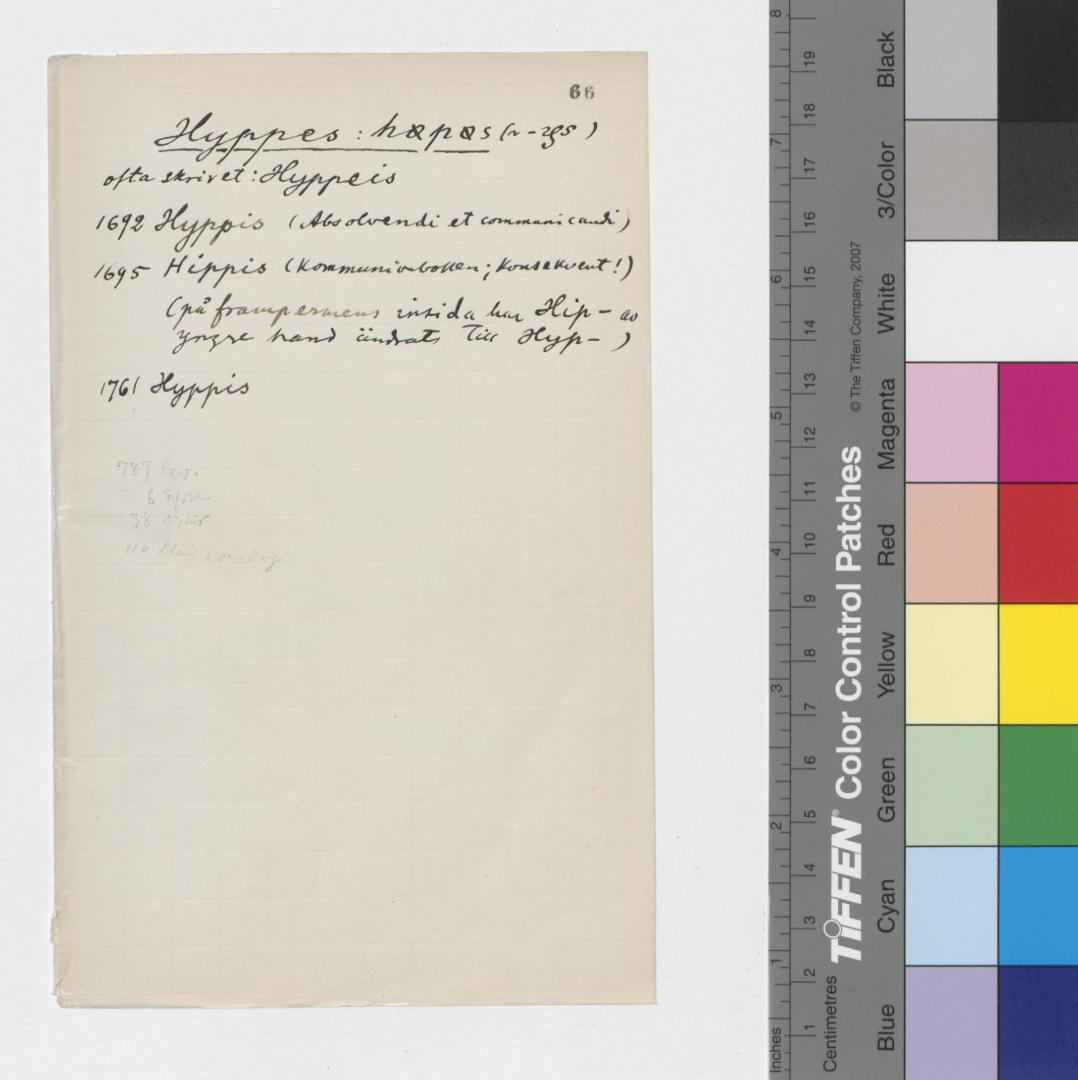 66
Hyppes : høpøs
ofta skrivet: Hyppeis
1692 Hyppis (Absolvendi et communicandi)
1695 Hippis (Kommunionboken; konsekvent!)
(på frampermens insida har Hip- av
yngre hand ändrats till Hyp-)
1761 Hyppis
787
6
38
110
8
7
6
5
4
3
2
1
Inches
19
18
17
16
15
14
13
12
11
10
9
8
7
6
5
4
3
2
1
Centimetres
TIFFEN® Color Control Patches
© The Tiffen Company, 2007
Black
3/Color
White
Magenta
Red
Yellow
Green
Cyan
Blue